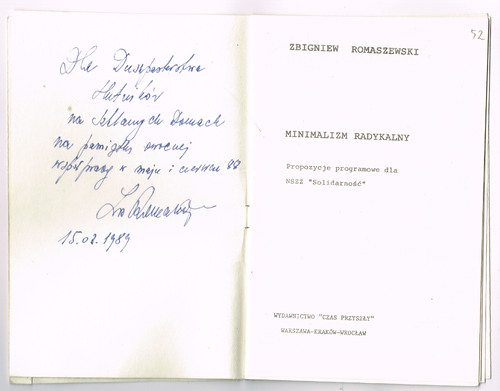 Dla Duszpasterstwa
Hutników
na Szklanych Domach
na pamiątkę owocnej
współpracy w maju i czerwcu 88
15.02.1989
52
ZBIGNIEW ROMASZEWSKI
MINIMALIZM RADYKALNY
Propozycje programowe dla
NSZZ "Solidarność"
WYDAWNICTWO "CZAS PRZYSZŁY"
WARSZAWA-KRAKÓW-WROCŁAW